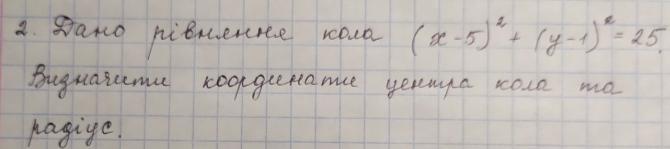 2. Дано рівняння кола (x-5)² + (y-1)² = 25.
Визначити координати центра кола та
радіус.